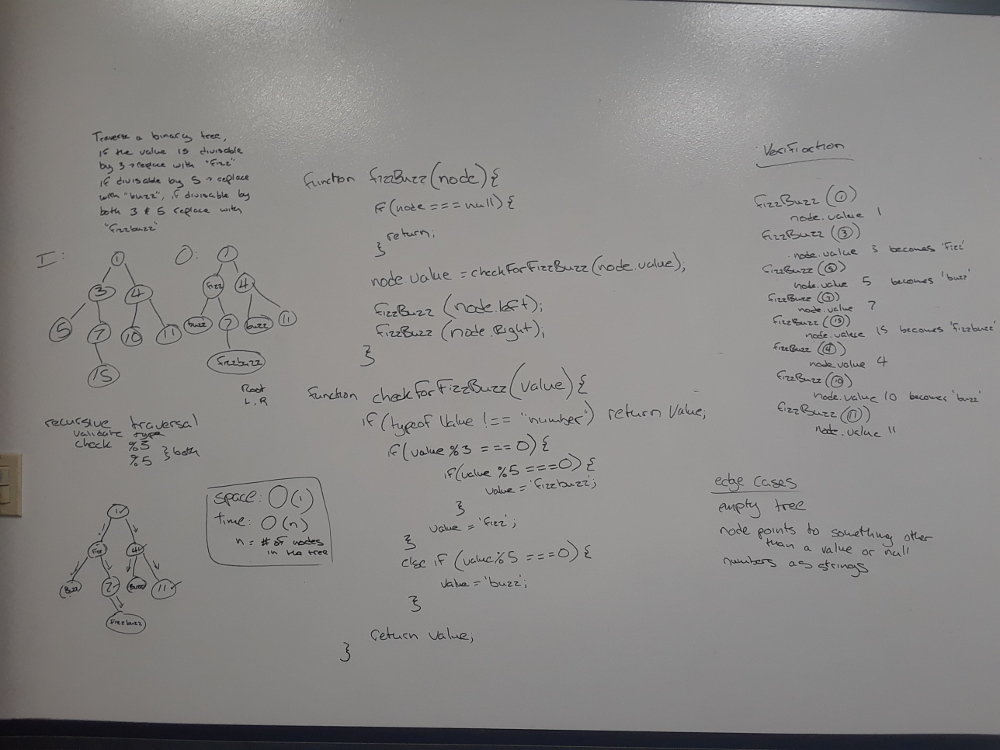 Traverse a binary tree,
if the value is divisable
by 3 → replace with "Fizz"
if divisable by 5 → replace
with "buzz", if divisable by
both 3 & 5 replace with
"Fizzbuzz"
I:
1
3 4
5 7 10 11
15
O:
1
Fizz 4
buzz 7 buzz 11
Fizzbuzz
Root
L.R
recursive traversal
validate type
check %3
%5 } both
1
Fizz 4
Buzz 7 Buzz 11
Fizzbuzz
space: O(1)
time: O(n)
n = # of nodes
in the tree
function fizzBuzz(node){
if(node === null){
return;
}
node.value = checkForFizzBuzz(node.value),
fizzBuzz (node.left);
fizzBuzz (node.Right);
}
function checkForFizzBuzz(value){
if(typeof Value !== "number") return Value;
if(value %3 === 0){
if(value %5 ===0){
value = 'Fizzbuzz';
}
value = 'fizz';
}
else if (value%5 ===0){
value = 'buzz';
}
return value;
}
Verification
FizzBuzz (1)
node.value 1
FizzBuzz (3)
node.value 3 becomes 'Fizz'
FizzBuzz (5)
node.value 5 becomes 'buzz'
FizzBuzz (7)
node.value 7
FizzBuzz (15)
node.value 15 becomes 'fizzbuzz'
FizzBuzz (4)
node.value 4
FizzBuzz (10)
node.value 10 becomes 'buzz'
FizzBuzz (11)
node.value 11
edge cases
empty tree
node points to something other
than a value or null
numbers as strings